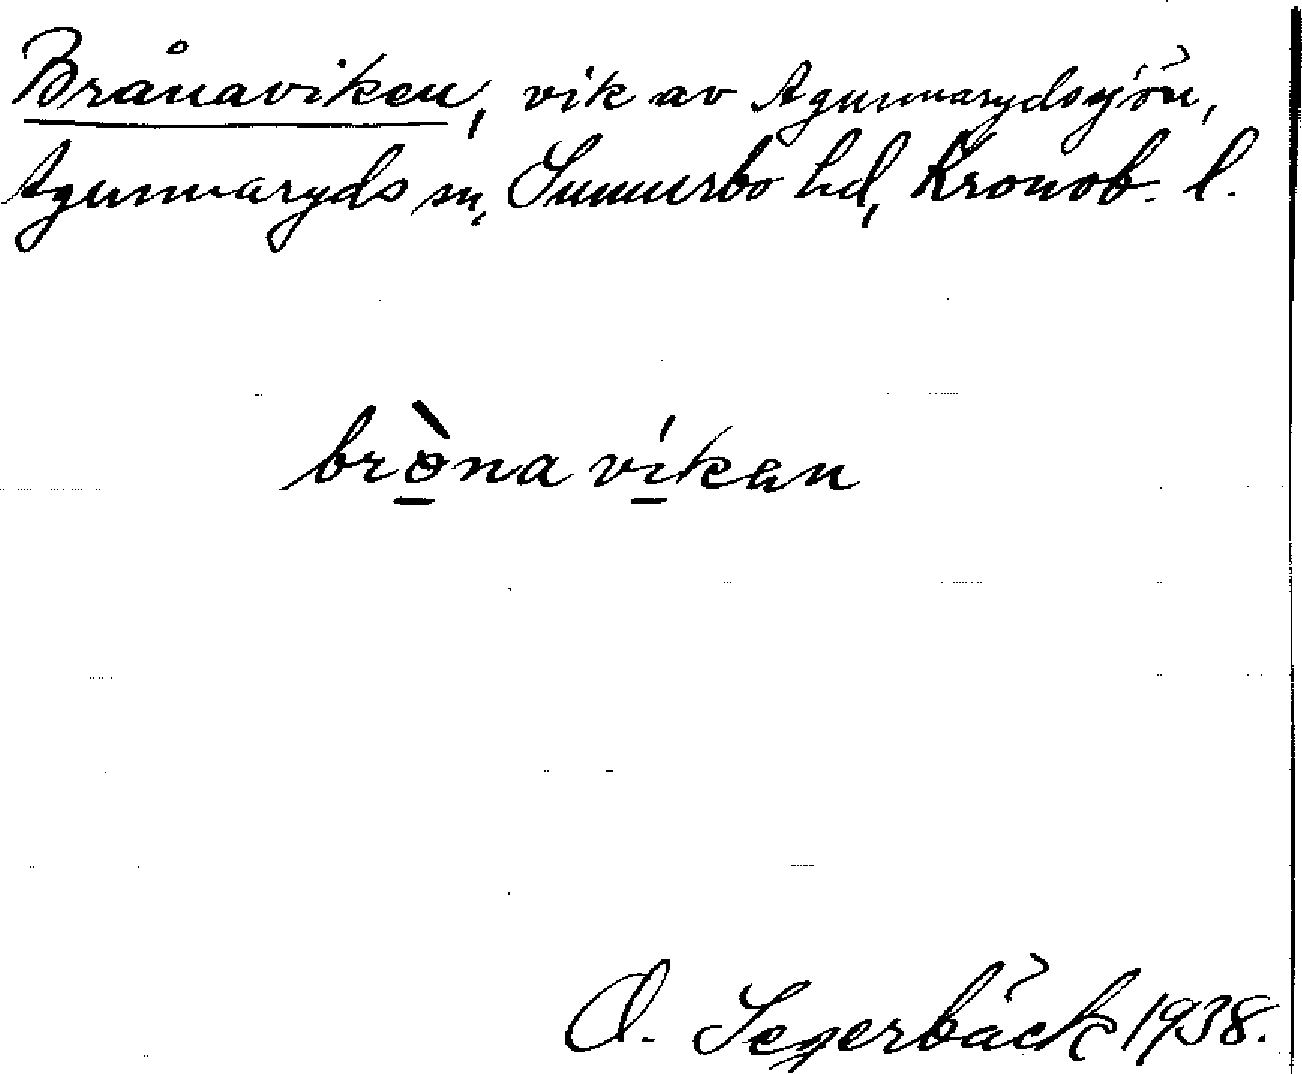 Brånaviken, vik av Agunnarydsjön,
Agunnaryds sn, Sunnerbo hd, Kronob. l.
brònavíkan
O. Segerbäck 1938.